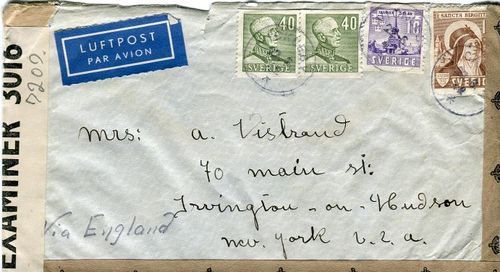 EXAMINER 3016
7202.
LUFTPOST
PAR AVION
40
SVERIGE
40
SVERIGE
SVERIGE
SANCTA BIRGITTA
SVERIGE
Mrs: A. Vistrand
70 Main St:
Irvington-on-Hudson
New. York U.S.A.
Via England